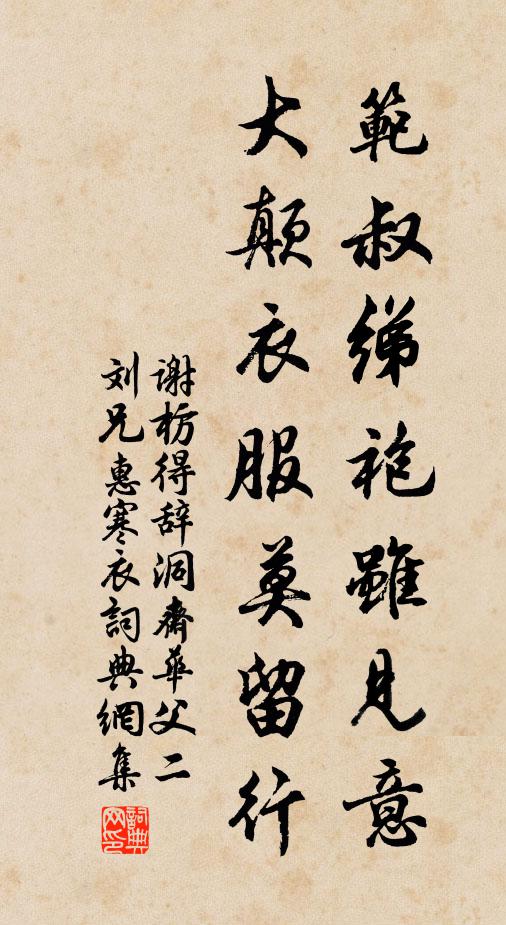 範叔綈袍雖見意
大顛衣服莫留行
谢枋得辞洞斋華父二
刘兄惠寒衣詞典網集
詞典网印